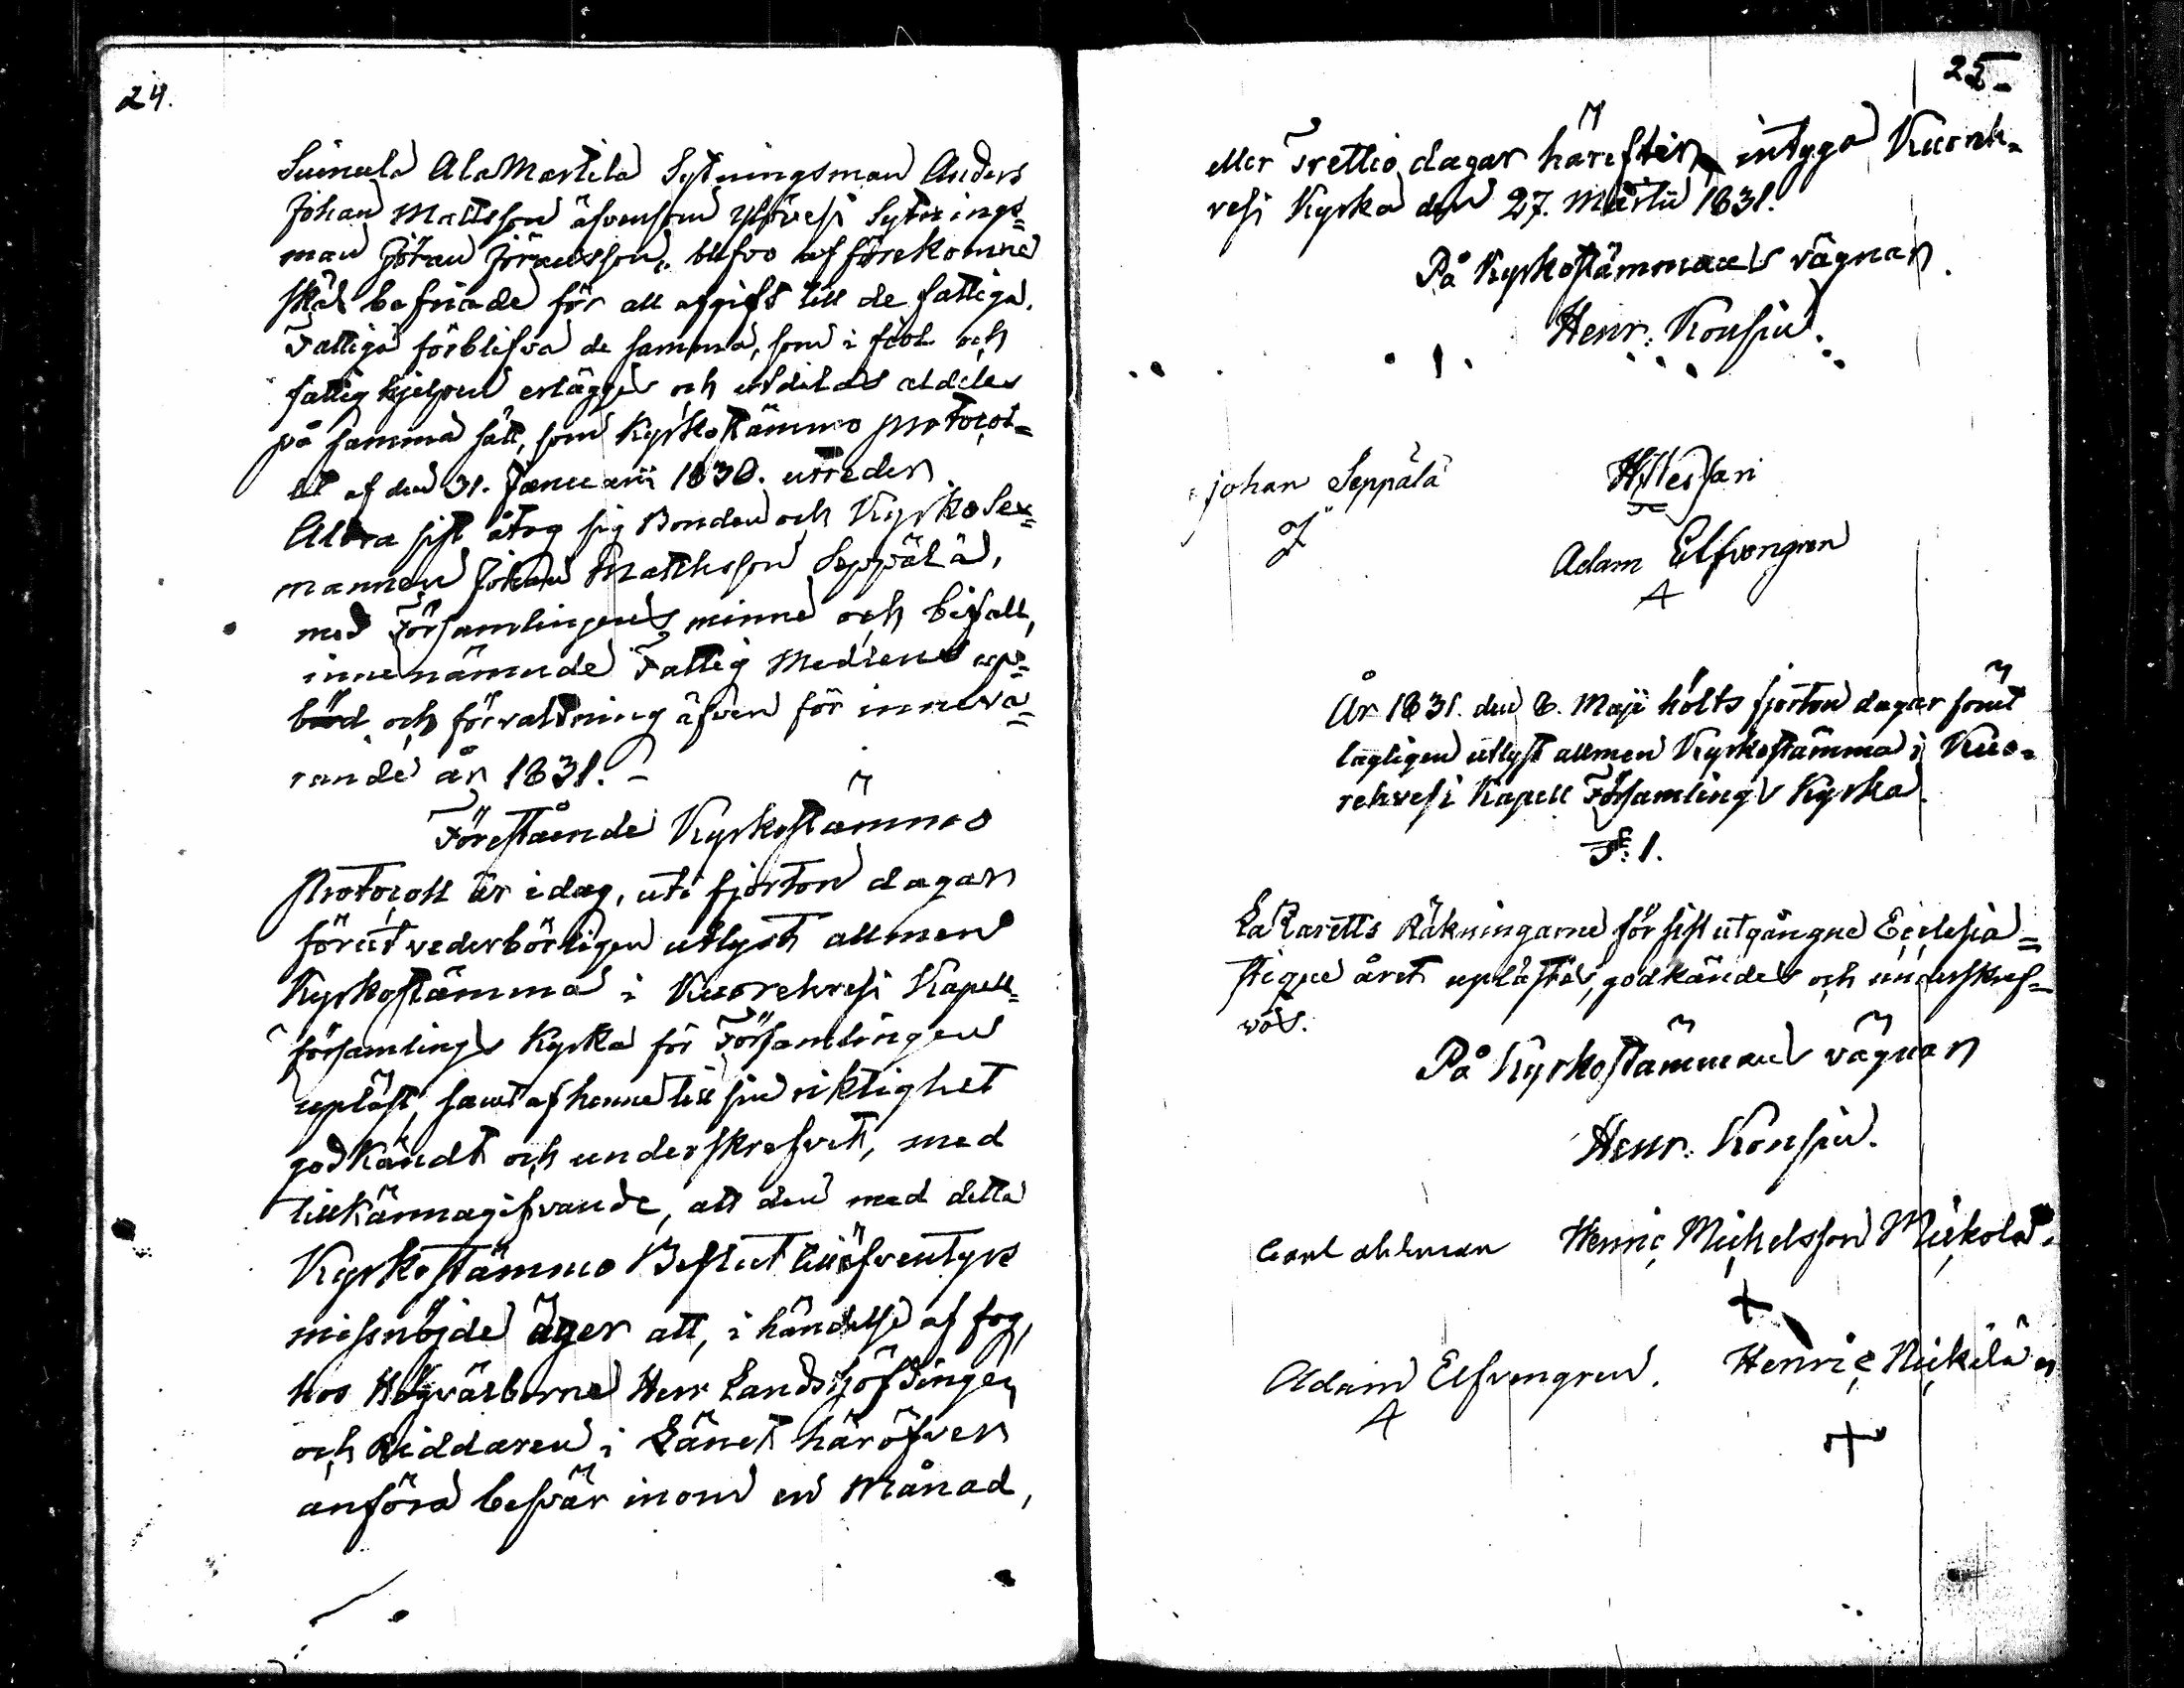 24.
Suinula AlaMartila Sytningsman Anders
Johan Mattsson äfvensom Ylövesi Sytnings=
man Johan Jöransson, blefvo af förekomne
skäl befriade för all afgift till de fattiga.
Fattiga förblifva de samma, som i fiol och
fattig hjelpen erlägges och utdelas aldeles
på samma sätt, som Kyrkostämmo protocol=
let af den 31. Januarii 1830. utreder
Allra sist åtog sig Bonden och Kyrko Sex=
mannen Johan Matthsson Seppälä,
med Församlingens minne och bifall,
innenämnde Fattig Medlens upp=
börd och förvaltning äfven för inneva=
rande år 1831. –
Förestående Kyrkostämmo
Protocoll är i dag, uti fjorton dagar
förut vederbörligen utlyst allmen
Kyrkostämma i Kuorehvesi Kapell=
församlings Kyrka för Församlingen
upläst, samt af henne till sin riktighet
godkändt och underskrefvet, med
tillkännagifvande, att den med detta
Kyrkostämmo Beslut tilläfventyrs
missnöjde äger att, i händelse af fog,
hos Högvälborne Herr Landshöfdingen
och Riddaren i Länet häröfver
anföra besvär inom en Månad,
25
eller Trettio dagar härefter, intyga Kuoreh=
vesi Kyrka den 27. Martii 1831.
På Kyrkostämmans vägnar
Henr. Konsin.
johan Seppälä
Adam Elfvengren
A
År 1831. den 8. Maji hölts fjorton dagar förut
lagligen utlyst allmen Kyrkostämma i Kuo=
rehvesi Kapell Församlings Kyrka.
§. 1.
Lazaretts Räkningarne för sist utgångne Ecclesia=
stique året uplästes, godkändes och underskref=
vos.
På Kyrkostämmans vägnar
Henr. Konsin.
Carl ahlman Henric Michelsson Mickola.
+
Adam Elfvengren. Henric Mickilä
A +